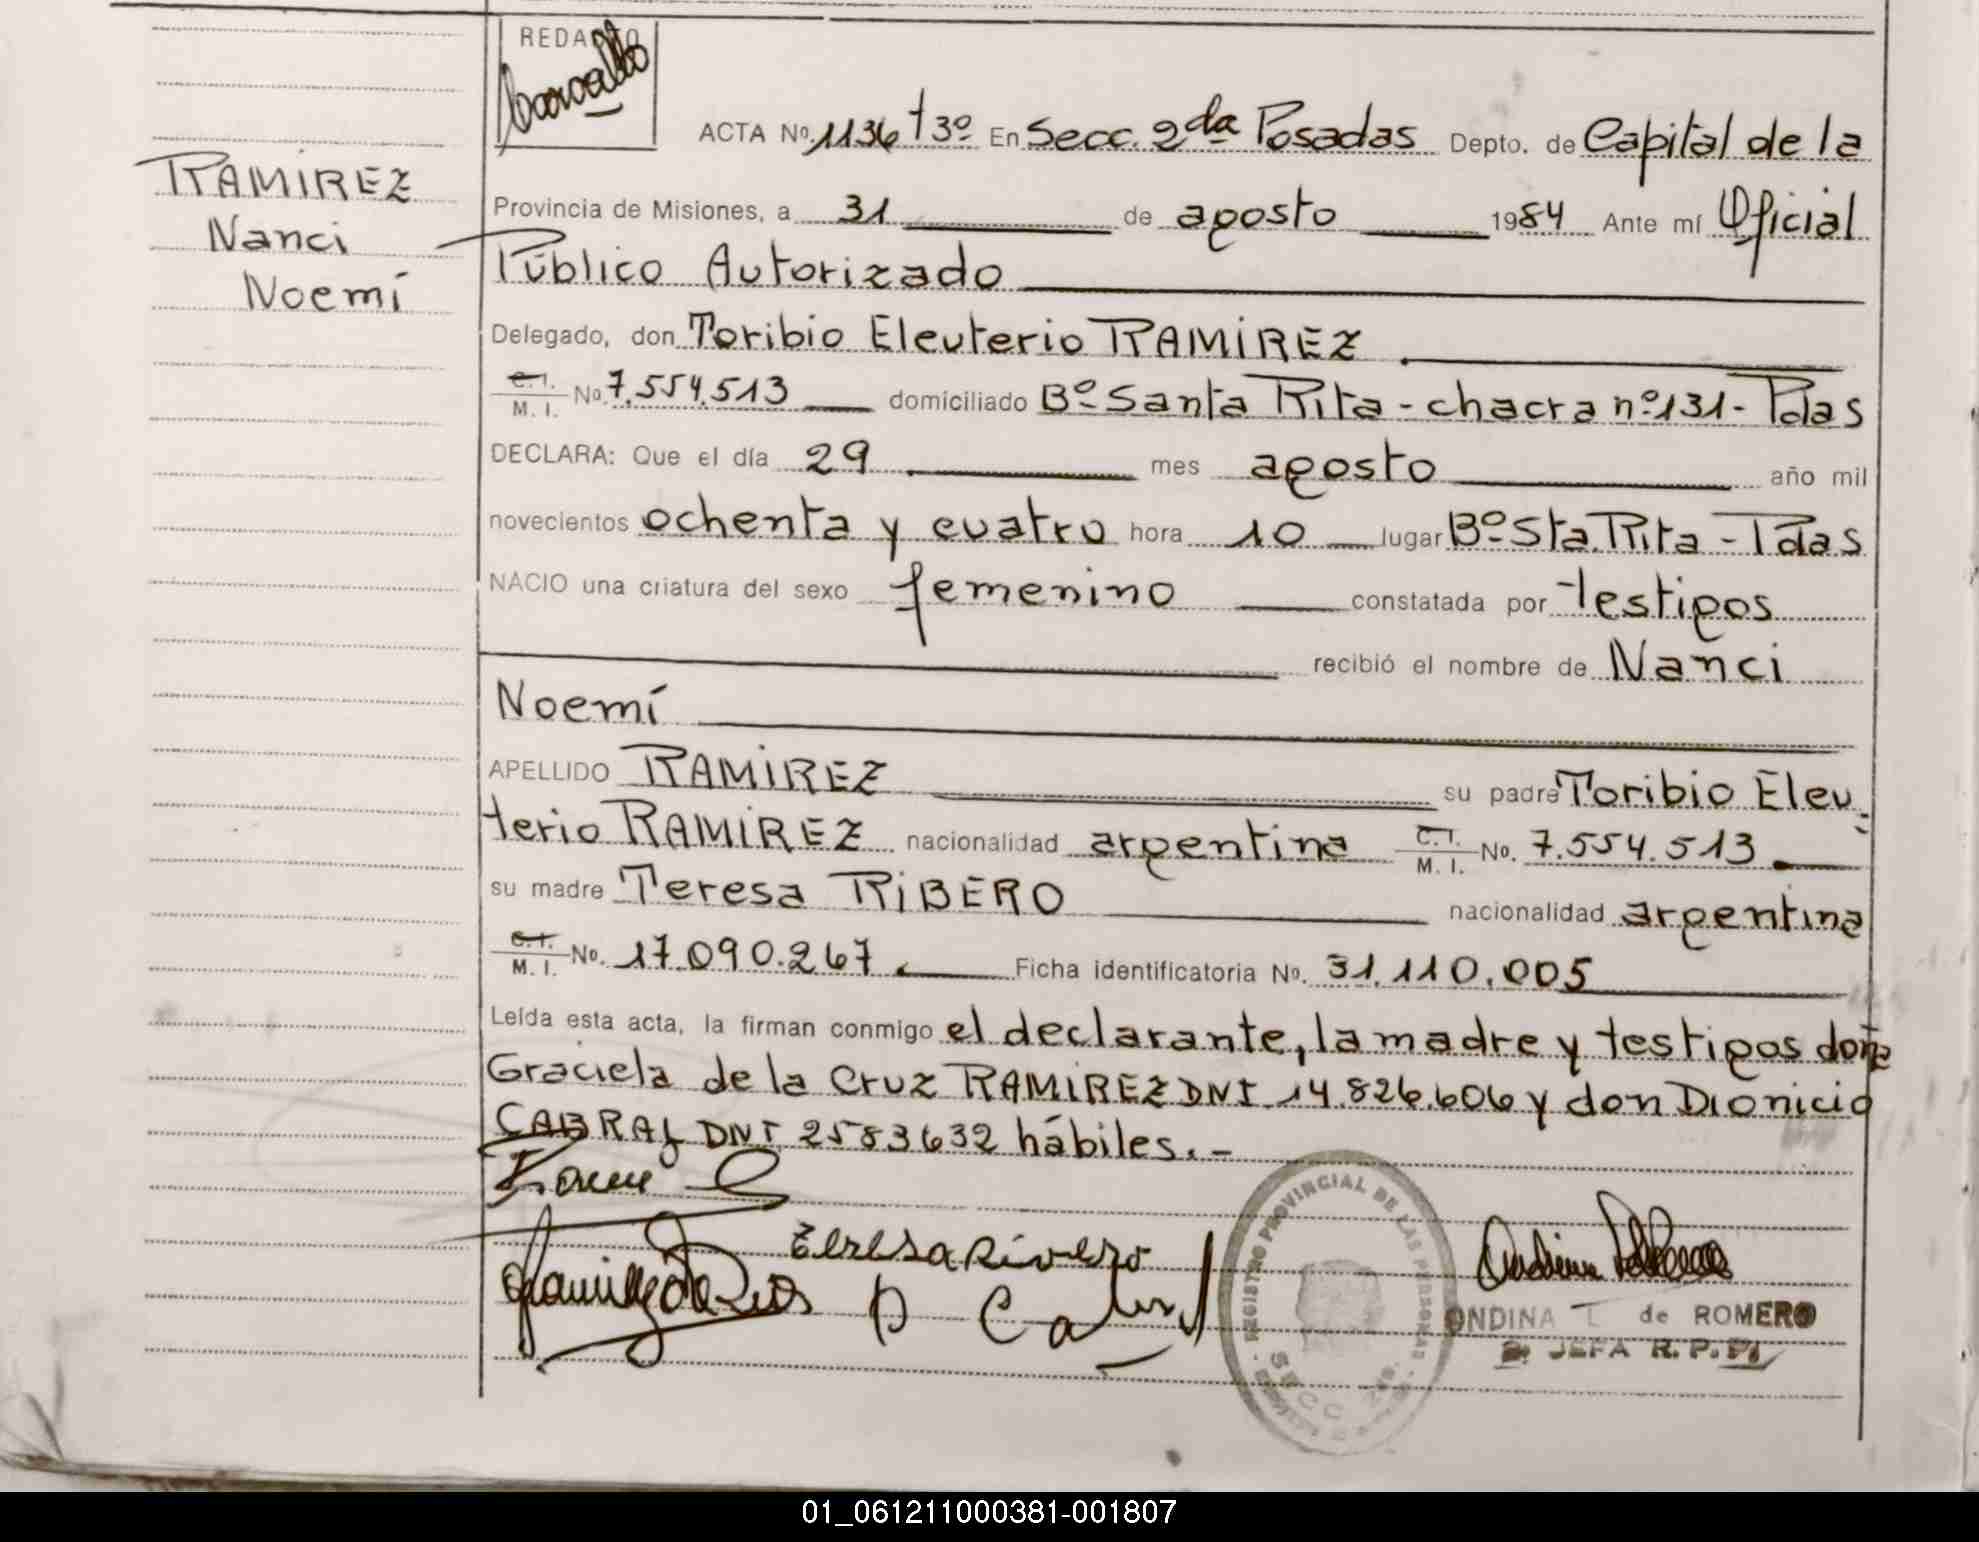 REDACTO
ACTA Nº. 1136 tº 3º En Secc. 2da Posadas Depto. de Capital de la
RAMIREZ
Nanci
Noemí
Provincia de Misiones, a 31 de agosto 1984 Ante mí Oficial
Público Autorizado
Delegado, don Toribio Eleuterio RAMIREZ
C.I.
M. I. No. 7.554.513 domiciliado Bº Santa Rita - chacra nº 131 - Pdas
DECLARA: Que el día 29 mes agosto año mil
novecientos ochenta y cuatro hora 10 lugar Bº Sta. Rita - Pdas
NACIO una criatura del sexo femenino constatada por testigos
recibió el nombre de Nanci
Noemí
APELLIDO RAMIREZ su padre Toribio Eleu
terio RAMIREZ nacionalidad argentina C.I. M. I. No. 7.554.513
su madre Teresa RIBERO nacionalidad argentina
C.I.
M. I. No. 17.090.267 Ficha identificatoria No. 31.110.005
Leída esta acta, la firman conmigo el declarante, la madre y testigos doña
Graciela de la Cruz RAMIREZ DNI 14.826.606 y don Dionicio
CABRAL DNI 2583632 hábiles. -
Teresa Rivero
REGISTRO PROVINCIAL DE LAS PERSONAS
SECC 2da.
ONDINA T. de ROMERO
JEFA R. P. P.
01_061211000381-001807